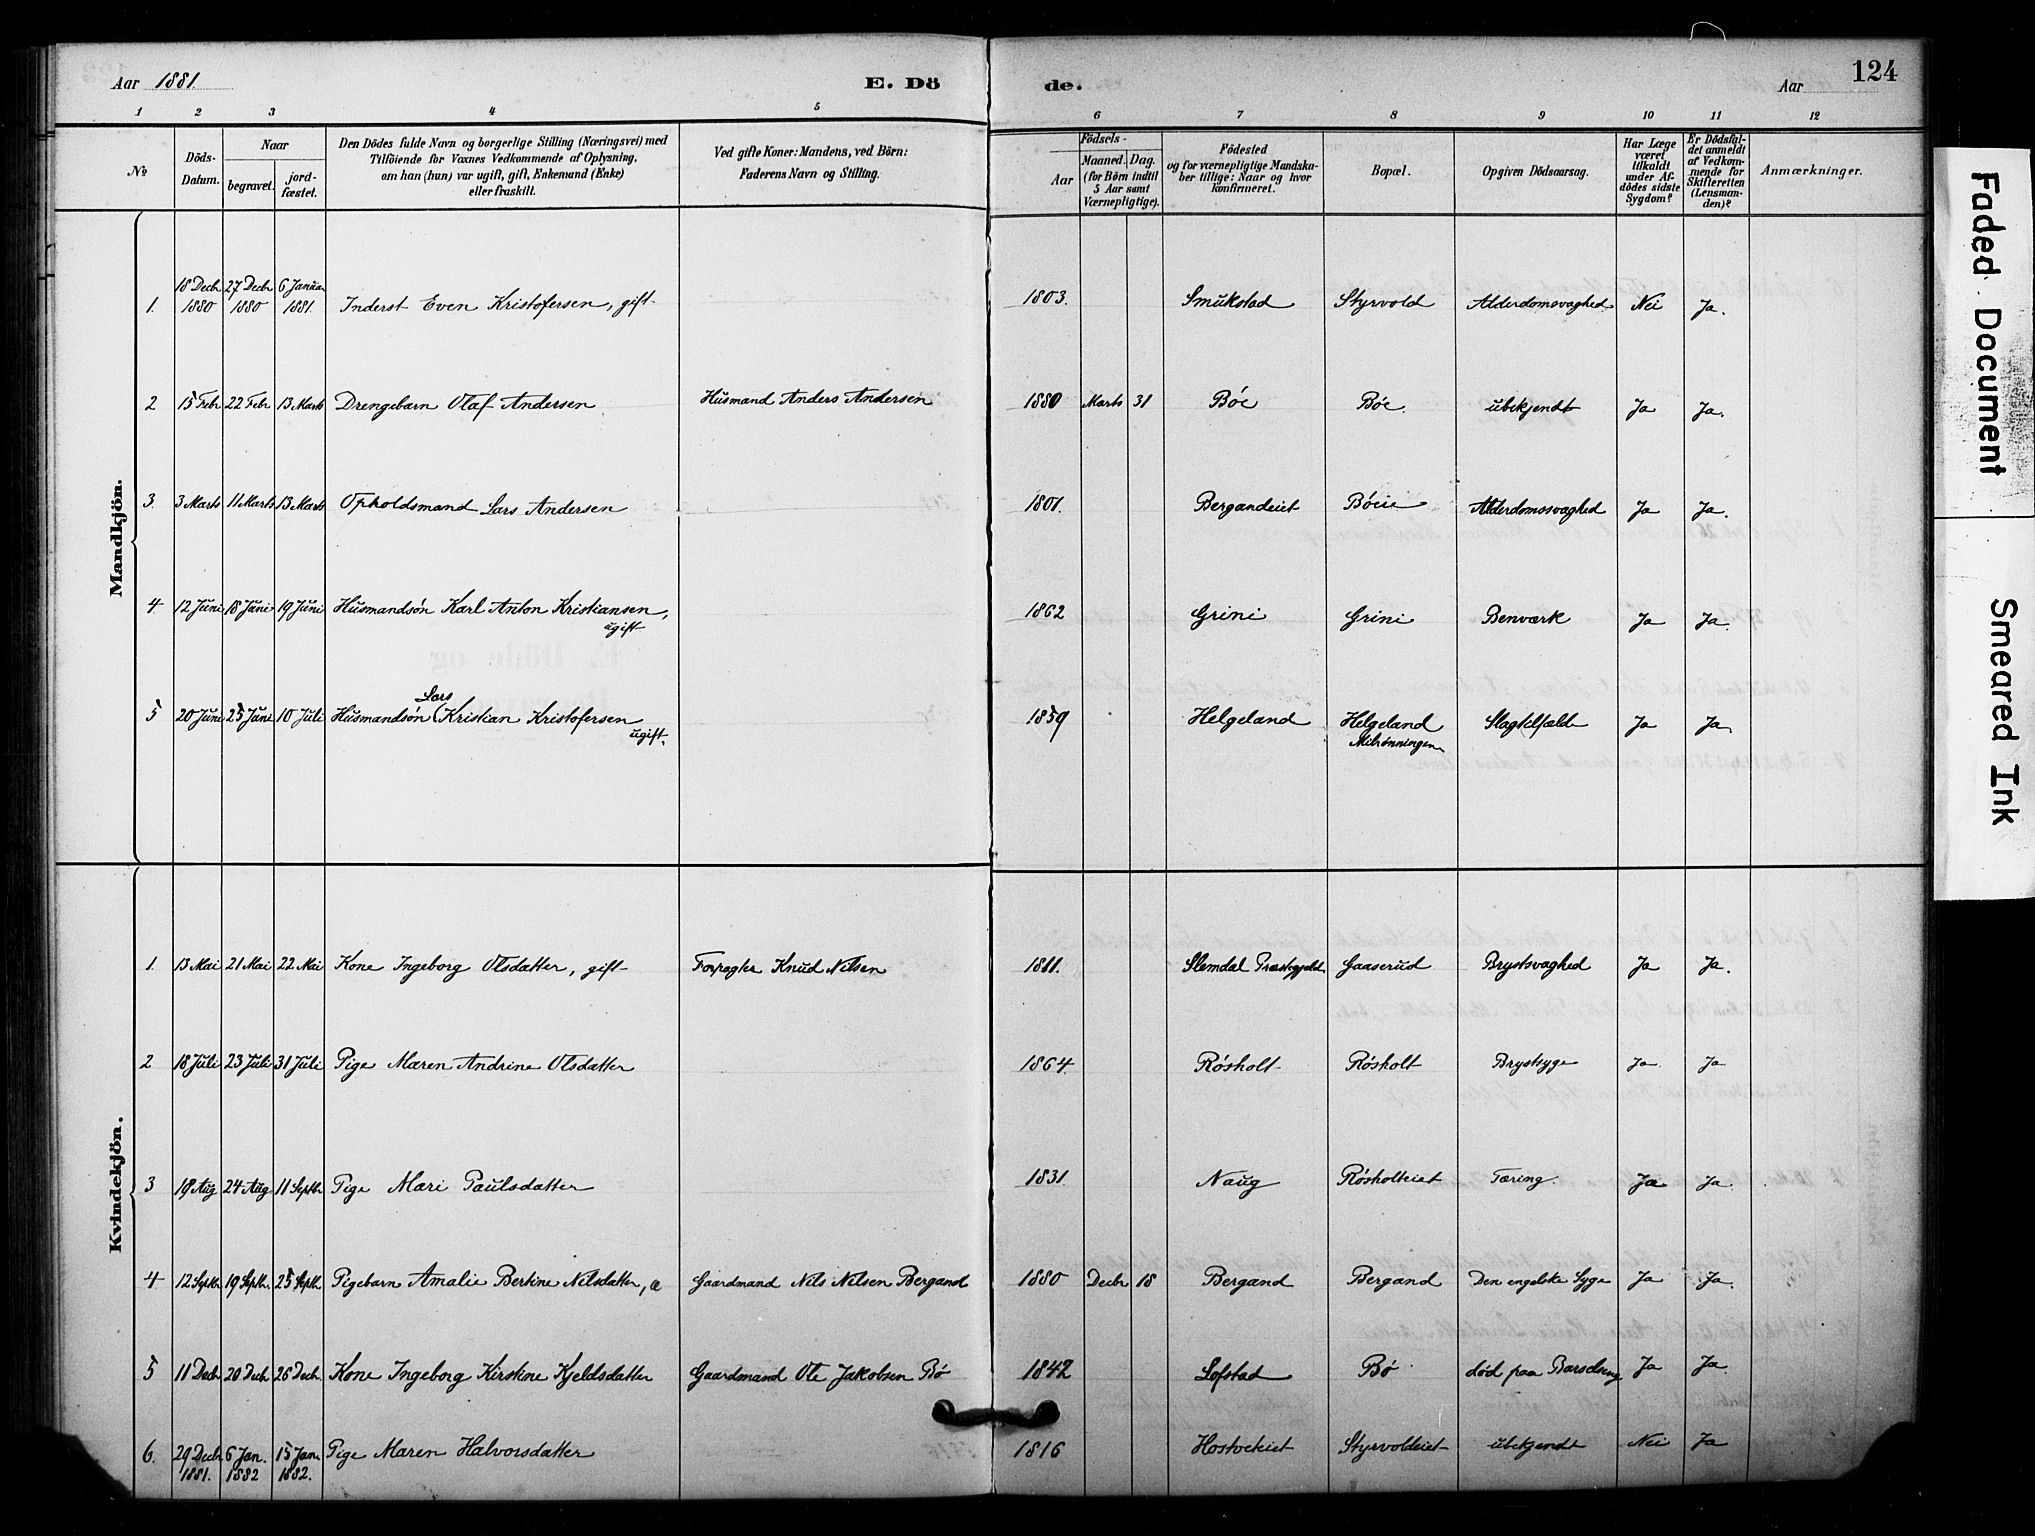 Aar 1881. E. Dö de. Aar 124
1 2 3 4 5 6 7 8 9 10 11 12
№ Döds-Datum. Naar begravet. jordfæstet. Den Dödes fulde Navn og borgerlige Stilling (Næringsvei) med Tilföiende for Voxnes Vedkommende af Oplysning, om han (hun) var ugift, gift, Enkemand (Enke) eller fraskilt. Ved gifte Koner: Mandens, ved Börn: Faderens Navn og Stilling. Födsels- Aar Maaned. Dag. (for Börn indtil 5 Aar samt Værnepligtige). Födested og for værnepligtige Mandskaber tillige: Naar og hvor konfirmeret. Bopæl. Opgiven Dödsaarsag. Har Læge været tilkaldt under Afdödes sidste Sygdom? Er Dödsfaldet anmeldt af Vedkommende for Skifteretten (Lensmanden)? Anmærkninger.
Mandkjön.
1. 18 Decbr 1880 27 Decbr 1880 6 Januar 1881 Inderst Even Kristofersen, gift 1803. Smukstad Styrvold Alderdomsvaghed Nei Ja.
2 15 Febr 22 Febr 13 Marts Drengebarn Olaf Andersen Husmand Anders Andersen 1880 Marts 31 Bøe Bøe ubekjendt Ja Ja.
3. 3 Marts 11 Marts 13 Marts Opholdsmand Lars Andersen 1801. Bergandeiet Bøeie Alderdomssvaghed Ja Ja.
4 12 Juni 18 Juni 19 Juni Husmandsøn Karl Anton Kristiansen, ugift 1862 Grini Grini Benværk Ja Ja.
5 20 Juni 25 Juni 10 Juli Husmandsøn Lars Kristian Kristofersen ugift. 1859 Helgeland Helgeland Slagtilfælde Ja Ja
Kvindekjön.
1. 13 Mai 21 Mai 22 Mai Kone Ingeborg Olsdatter, gift Forpagter Knud Nilsen 1811. Slemdal Præstegjeld Gaaserud Brystsvaghed Ja Ja.
2 18 Juli 23 Juli 31 Juli Pige Maren Andrine Olsdatter 1864 Røsholt Røsholt Brystsyge Ja Ja
3 19 Aug 24 Aug 11 Septbr Pige Mari Paulsdatter 1831 Naug Røsholteiet Tæring. Ja Ja.
4 12 Septbr 19 Septbr. 25 Septbr Pigebarn Amalie Bertine Nilsdatter, Gaardmand Nils Nilsen Bergand 1880 Decbr 18 Bergand Bergand Den engelske Syge Ja Ja.
5 11 Decbr 20 Decbr 26 Decbr Kone Ingeborg Kirstine Kjeldsdatter Gaardmand Ole Jakobsen Bø 1842 Lofstad Bø død paa Barselseng Ja Ja.
6. 29 Decbr 1881. 6 Jan. 1882 15 Jan. 1882. Pige Maren Halvorsdatter 1816 Styrvoldeiet ubekjendt Nei Ja
Faded Document
Smeared Ink